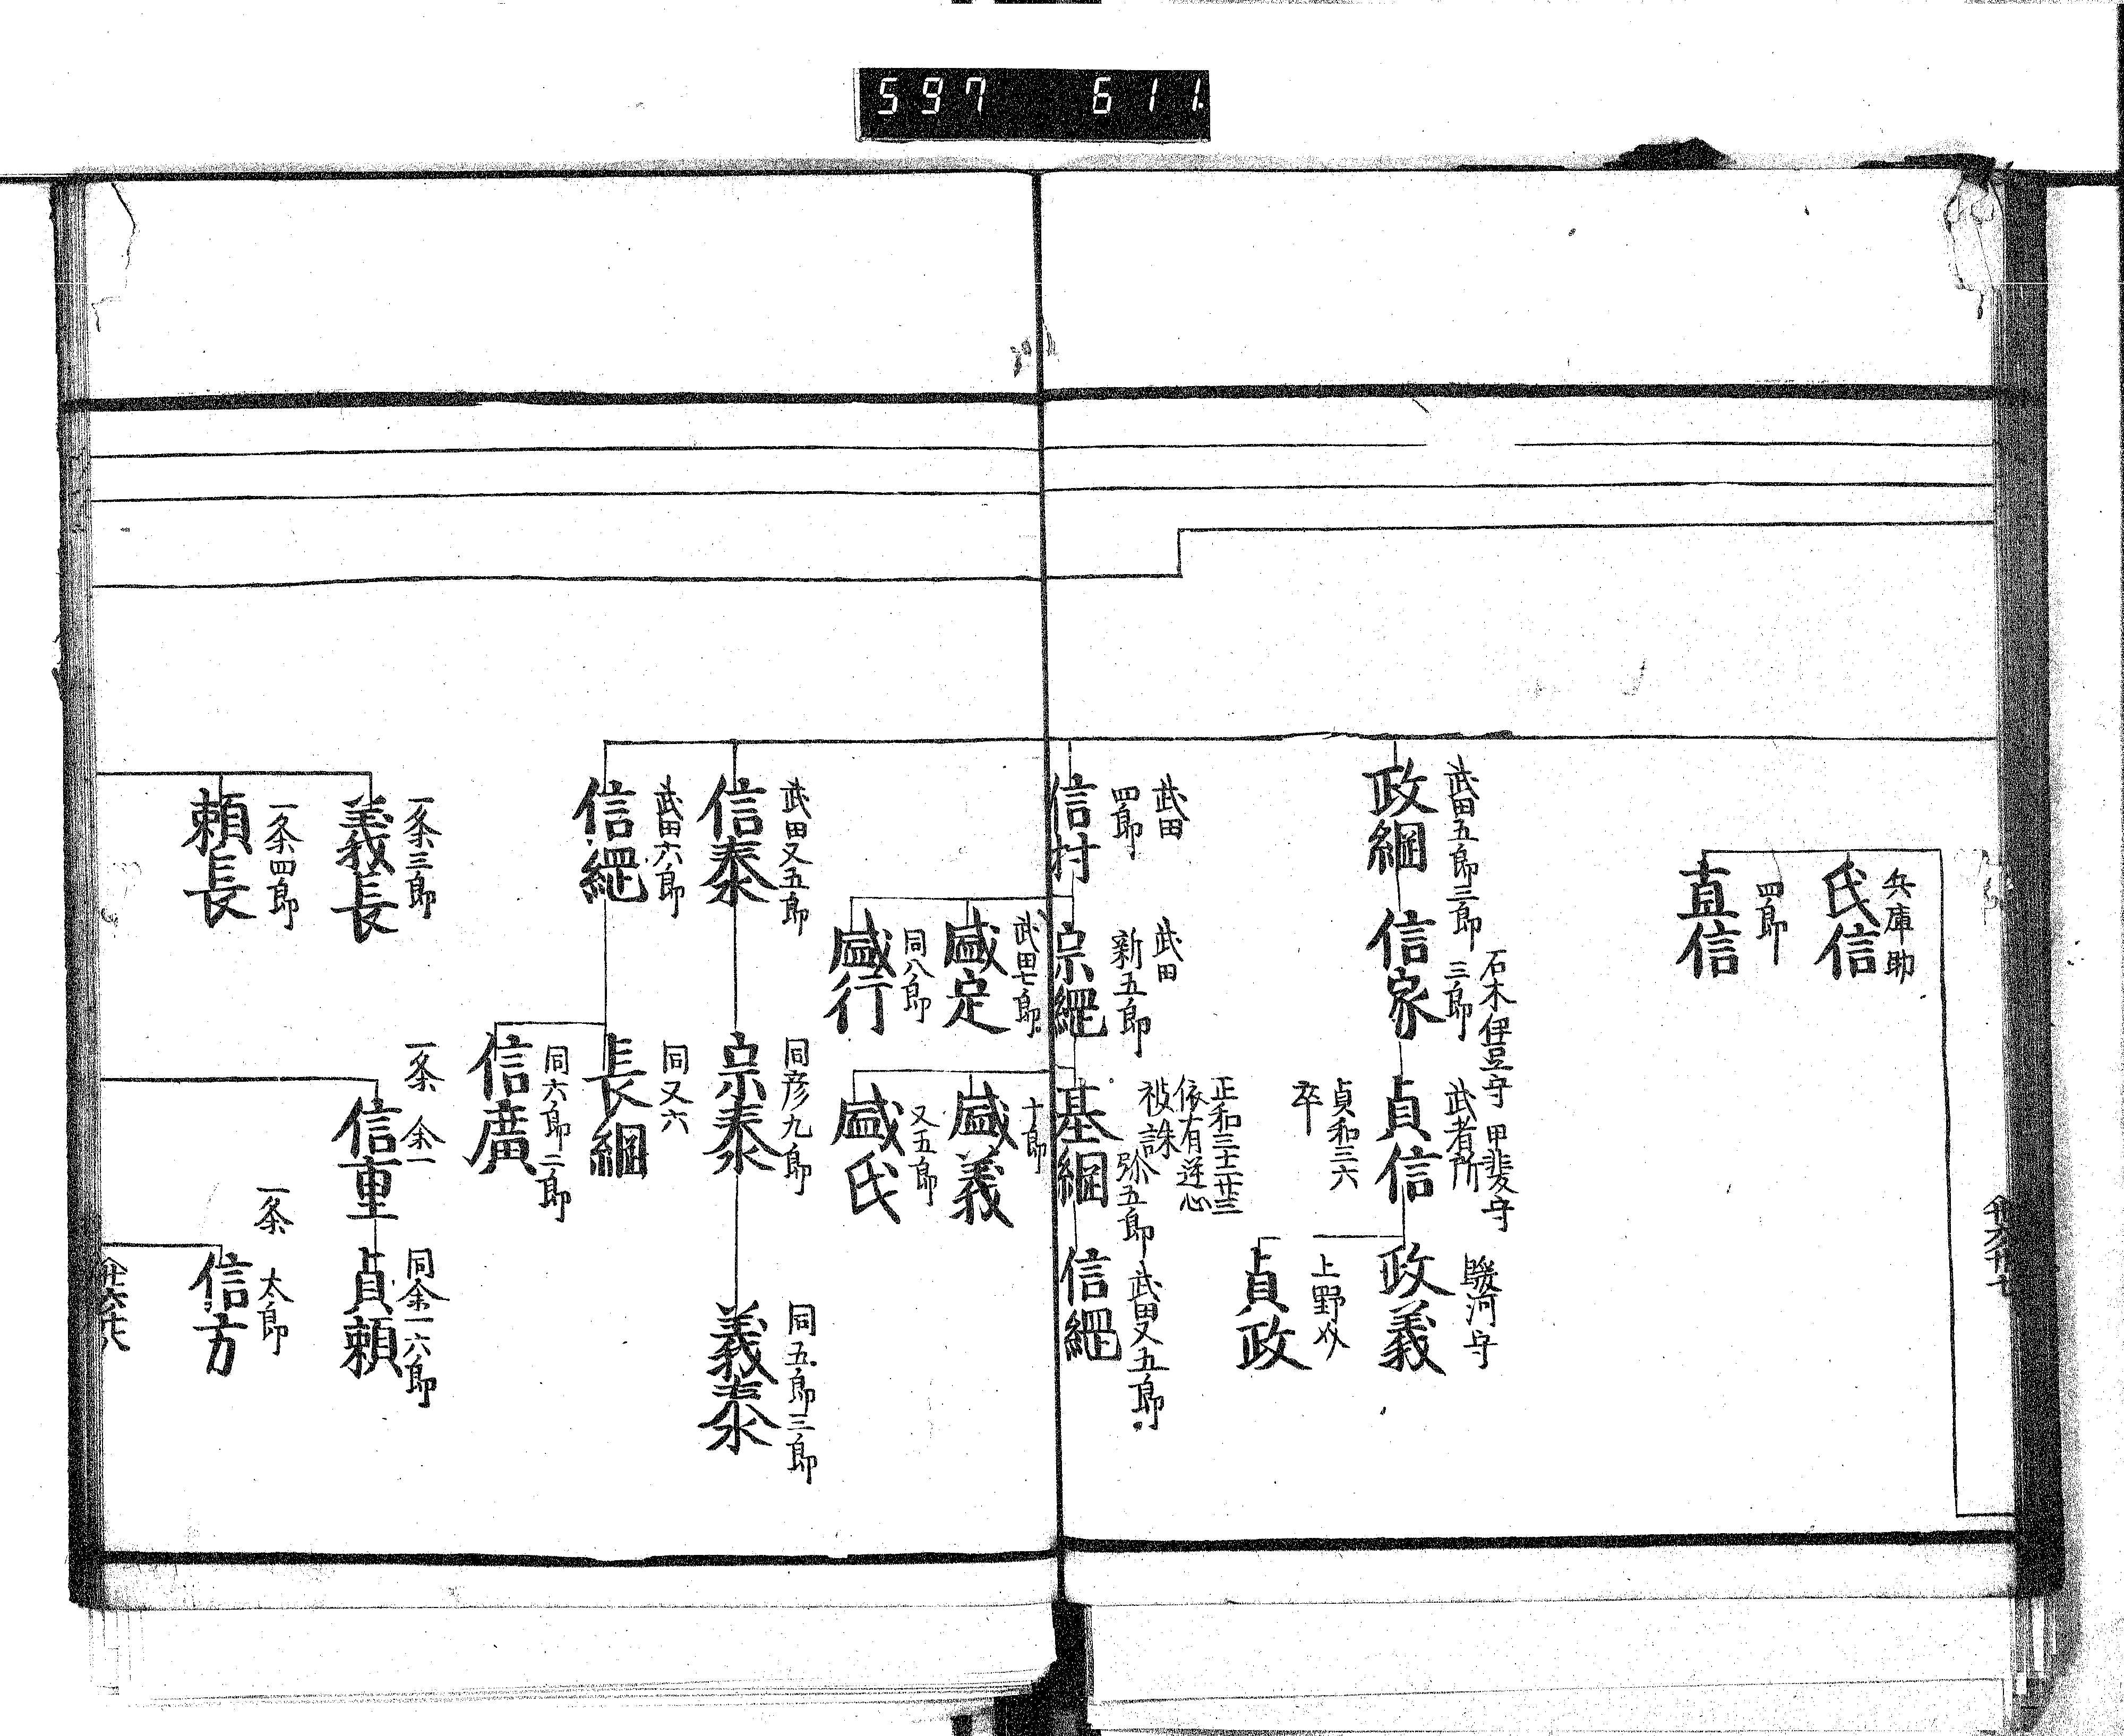 597 611
兵庫助
氏信
四郎
直信
武田五郎三郎
政綱
石木伊豆守
三郎
信家
甲斐守
武者所
貞信
貞和三六
卒
駿河守
政義
上野介
貞政
武田
四郎
信村
武田
新五郎
宗繩
正和三十二廿三
依有逆心
被誅
弥五郎
基綱
武田又五郎
信繩
武田七郎
盛定
同八郎
盛行
十郎
盛義
又五郎
盛氏
武田又五郎
信泰
同彦九郎
宗泰
同五郎三郎
義泰
武田六郎
信繩
同又六
長綱
同六郎二郎
信廣
一条三郎
義長
一条四郎
頼長
一条
余一
信重
同余一六郎
貞頼
一条
太郎
信方